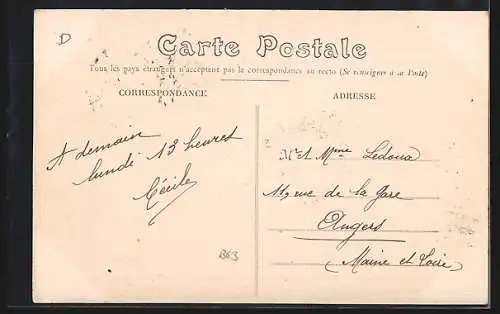 D
Carte Postale
Tous les pays étrangers n'acceptent pas la correspondance au recto (Se renseigner à la Poste)
CORRESPONDANCE
ADRESSE
A demain
lundi 13 heures
Cécile
Mr et Mme Ledoux
11, rue de la Gare
Angers
(Maine et Loire)